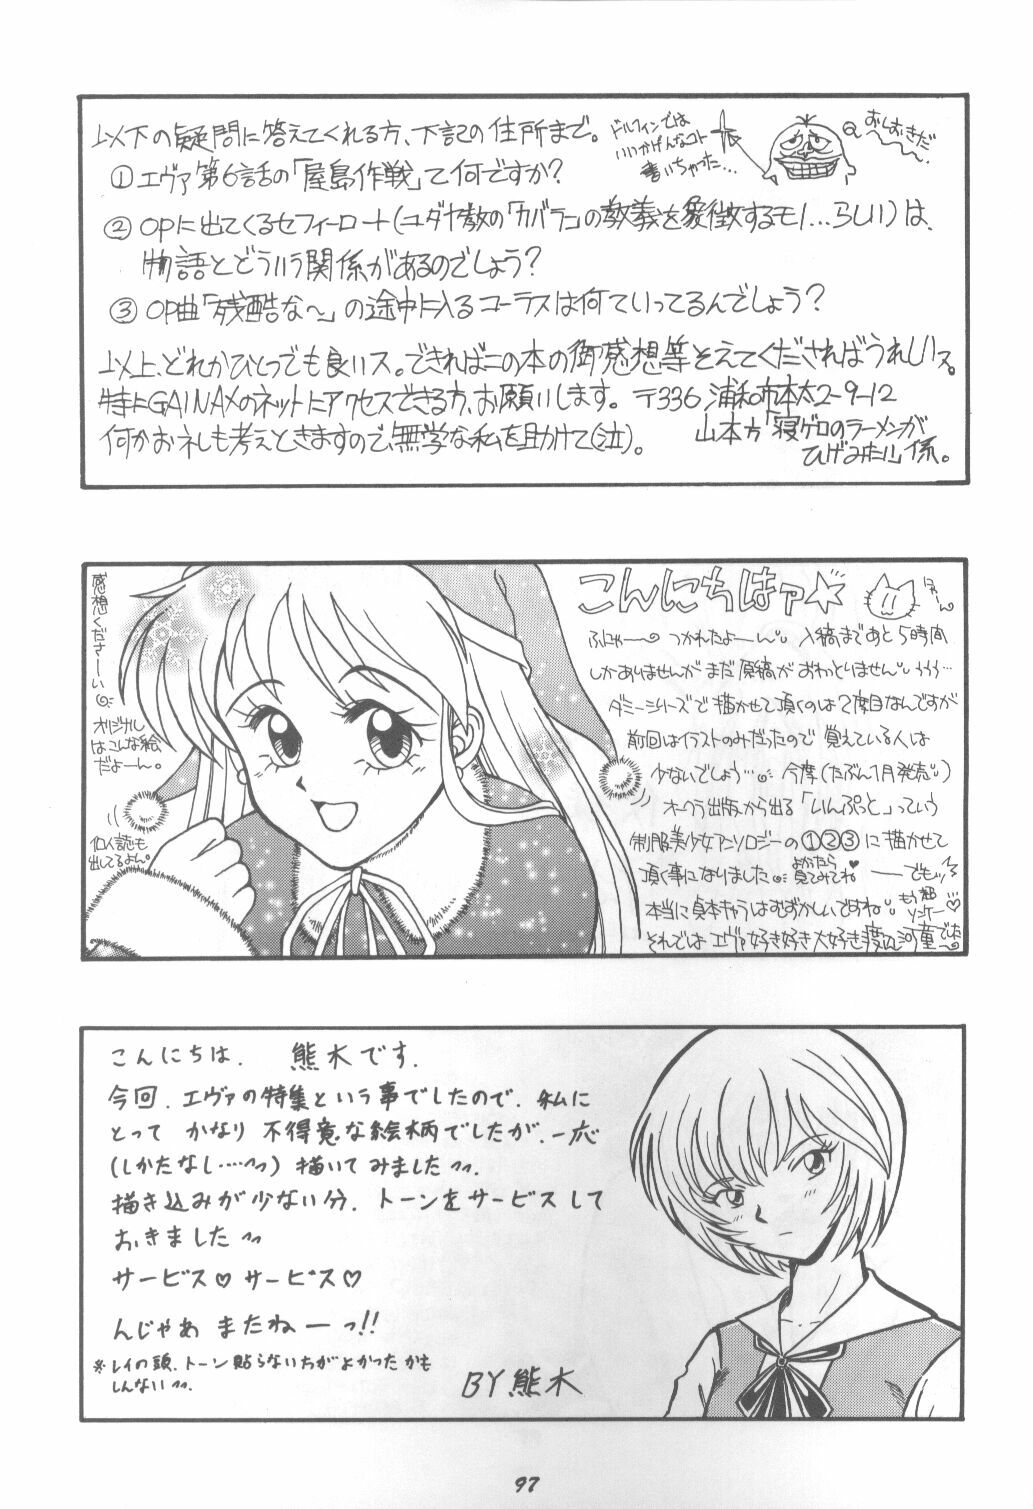 以下の疑問に答えてくれる方、下記の住所まで。
ドルフィンでは
いいかげんなコト
書いちゃった…
おしおきだ〜〜
①エヴァ第6話の「屋島作戦」て何ですか?
②OPに出てくるセフィーロト(ユダヤ教の「カバラ」の教義を象徴するモノ…らしい)は、
物語とどういう関係があるのでしょう?
③OP曲「残酷な〜」の途中に入るコーラスは何ていってるんでしょう?
以上、どれかひとつでも良いス。できればこの本の御感想等そえてくださればうれしいス。
特にGAINAXのネットにアクセスできる方、お願いします。〒336 浦和市本太2-9-12
何かお礼も考えときますので、無学な私を助けて(泣)。
山本方「寝ゲロのラーメンが
ひげみたい」係。
感想くださーーい
オリジナル
はこんな絵
だよーん。
個人誌も
出してるよん。
こんにちはァ☆
ふにゃー〜 つかれたよーーん。 入稿まであと5時間
しかありませんがまだ原稿がおわっとりません。ううう…
ダミーシリーズで描かせて頂くのは2度目なんですが
前回はイラストのみだったので覚えている人は
少ないでしょう… 今度(たぶん1月発売)
オークラ出版から出る「いんぷっと」っていう
制服美少女アンソロジーの①②③に描かせて
頂く事になりました よかったら見てみてね♥ ――でもッ
本当に貞本キャラはむずかしいですね。
それでは エヴァ好き好き大好き 河童でした
こんにちは. 熊木です.
今回. エヴァの特集という事でしたので. 私に
とって かなり 不得意な絵柄でしたが. 一応
(しかたなし……^^) 描いてみました^^.
描き込みが少ない分. トーンをサービスして
おきました^^
サービス♡ サービス♡
んじゃあ またねーーっ!!
※レイの頭. トーン貼らないちがよかったかも
しんない^^.
BY熊木
97